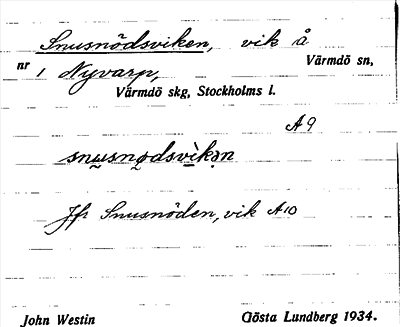 Snusnödsviken, vik å
nr 1 Nyvarp, Värmdö sn,
Värmdö skg, Stockholms l.
A9
snu̲snødsvìkən
Jfr Snusnöden, vik A10
John Westin Gösta Lundberg 1934.